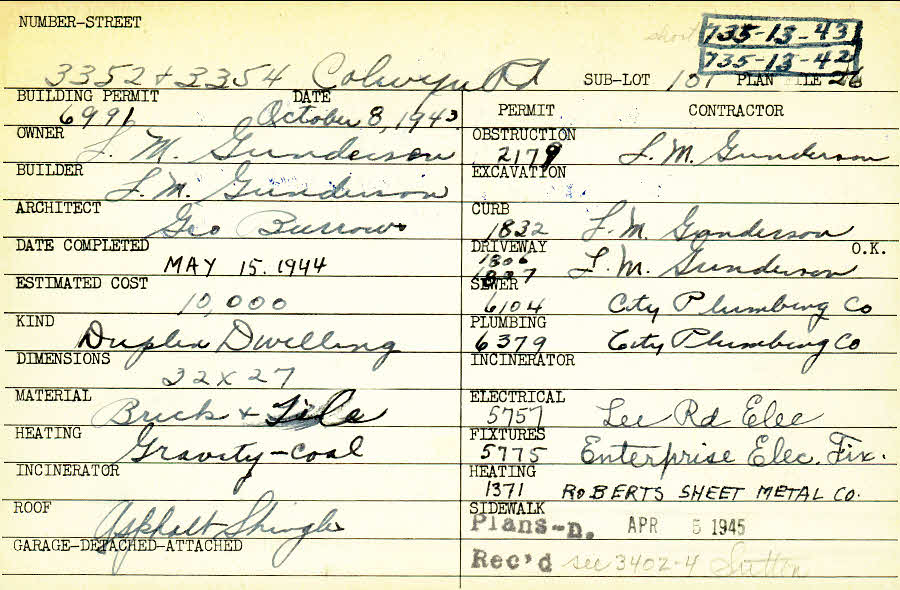 NUMBER-STREET
short 735-13-43
735-13-42
3352 + 3354 Colwyn Rd SUB-LOT 101 PLAN FILE 26
BUILDING PERMIT DATE
6991 October 8, 1943
OWNER
L. M. Gunderson
BUILDER
L. M. Gunderson
ARCHITECT
Geo Burrows
DATE COMPLETED
MAY 15. 1944
ESTIMATED COST
10,000
KIND
Duplex Dwelling
DIMENSIONS
32 x 27
MATERIAL
Brick + Tile
HEATING
Gravity-coal
INCINERATOR
ROOF
Asphalt Shingle
GARAGE-DETACHED-ATTACHED
PERMIT CONTRACTOR
OBSTRUCTION
2179 L. M. Gunderson
EXCAVATION
CURB
1832 L. M. Gunderson
DRIVEWAY O.K.
1806
1837 L. M. Gunderson
SEWER
6104 City Plumbing Co
PLUMBING
6379 City Plumbing Co
INCINERATOR
ELECTRICAL
5757 Lee Rd Elec
FIXTURES
5775 Enterprise Elec. Fix.
HEATING
1371 ROBERTS SHEET METAL CO.
SIDEWALK
Plans-D. APR 5 1945
Rec'd see 3402-4 Sutton